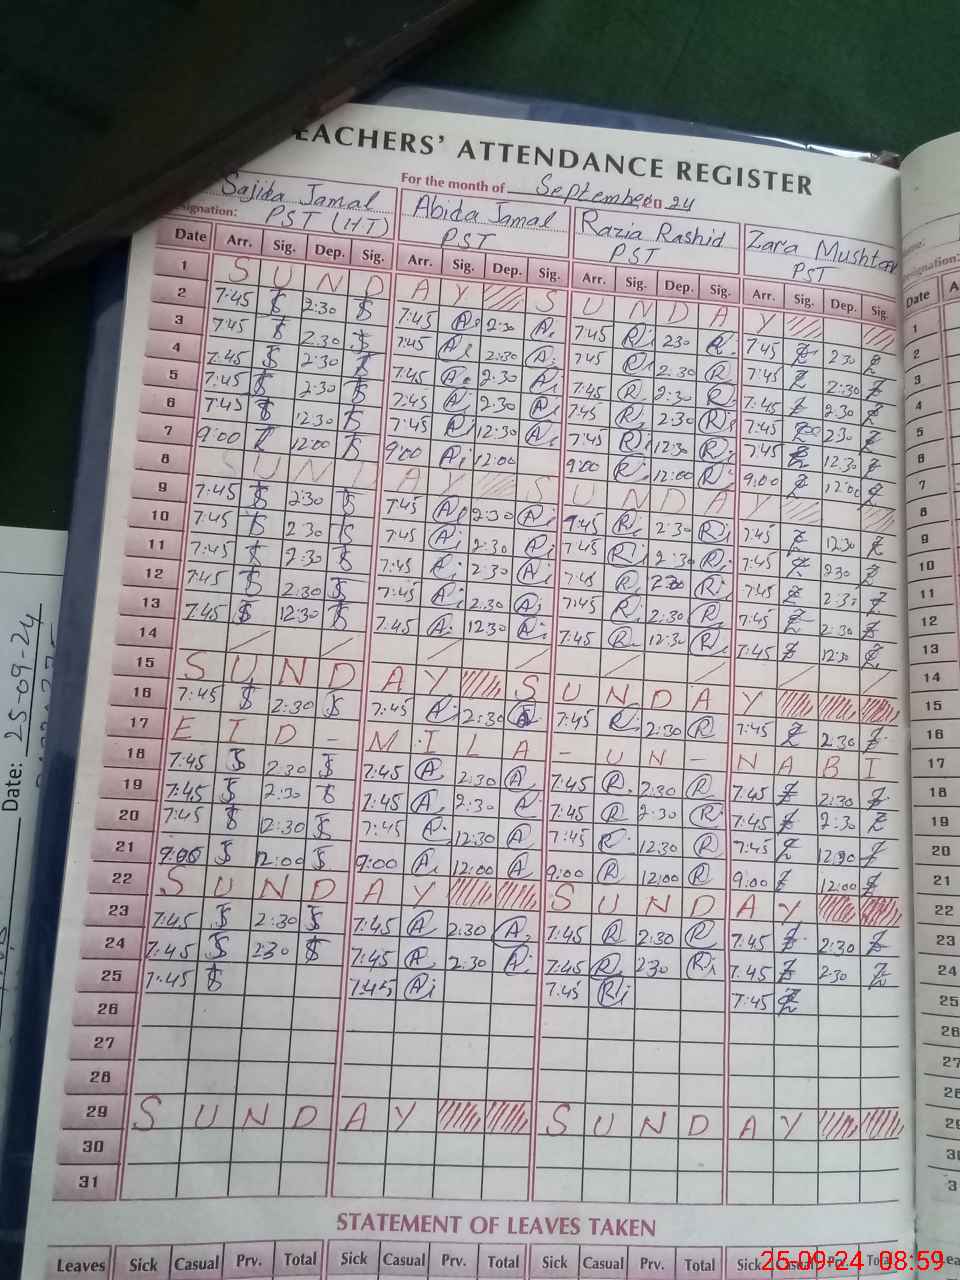 TEACHERS' ATTENDANCE REGISTER
For the month of September 20 24
Sajida Jamal Abida Jamal Razia Rashid Zara Mushtaq
Designation: PST (HT) PST PST PST
Date Arr. Sig. Dep. Sig. Arr. Sig. Dep. Sig. Arr. Sig. Dep. Sig. Arr. Sig. Dep. Sig.
1 S U N D A Y S U N D A Y
2 7:45 2:30 7:45 2:30 7:45 2:30 7:45 2:30
3 7:45 2:30 7:45 2:30 7:45 2:30 7:45 2:30
4 7:45 2:30 7:45 2:30 7:45 2:30 7:45 2:30
5 7:45 2:30 7:45 2:30 7:45 2:30 7:45 2:30
6 7:45 12:30 7:45 12:30 7:45 12:30 7:45 12:30
7 9:00 12:00 9:00 12:00 9:00 12:00 9:00 12:00
8 S U N D A Y S U N D A Y
9 7:45 2:30 7:45 2:30 7:45 2:30 7:45 12:30
10 7:45 2:30 7:45 2:30 7:45 2:30 7:45 2:30
11 7:45 2:30 7:45 2:30 7:45 2:30 7:45 2:30
12 7:45 2:30 7:45 2:30 7:45 2:30 7:45 2:30
13 7:45 12:30 7:45 12:30 7:45 12:30 7:45 12:30
14
15 S U N D A Y S U N D A Y
16 7:45 2:30 7:45 2:30 7:45 2:30 7:45 2:30
17 E I D - M I L A - U N - N A B I
18 7:45 2:30 7:45 2:30 7:45 2:30 7:45 2:30
19 7:45 2:30 7:45 2:30 7:45 2:30 7:45 2:30
20 7:45 12:30 7:45 12:30 7:45 12:30 7:45 12:30
21 9:00 12:00 9:00 12:00 9:00 12:00 9:00 12:00
22 S U N D A Y S U N D A Y
23 7:45 2:30 7:45 2:30 7:45 2:30 7:45 2:30
24 7:45 2:30 7:45 2:30 7:45 2:30 7:45 2:30
25 7:45 7:45 7:45 7:45
26
27
28
29 S U N D A Y S U N D A Y
30
31
STATEMENT OF LEAVES TAKEN
Leaves Sick Casual Prv. Total Sick Casual Prv. Total Sick Casual Prv. Total Sick Casual Prv. Total
Date: 25-09-24
25-09-24 08:59